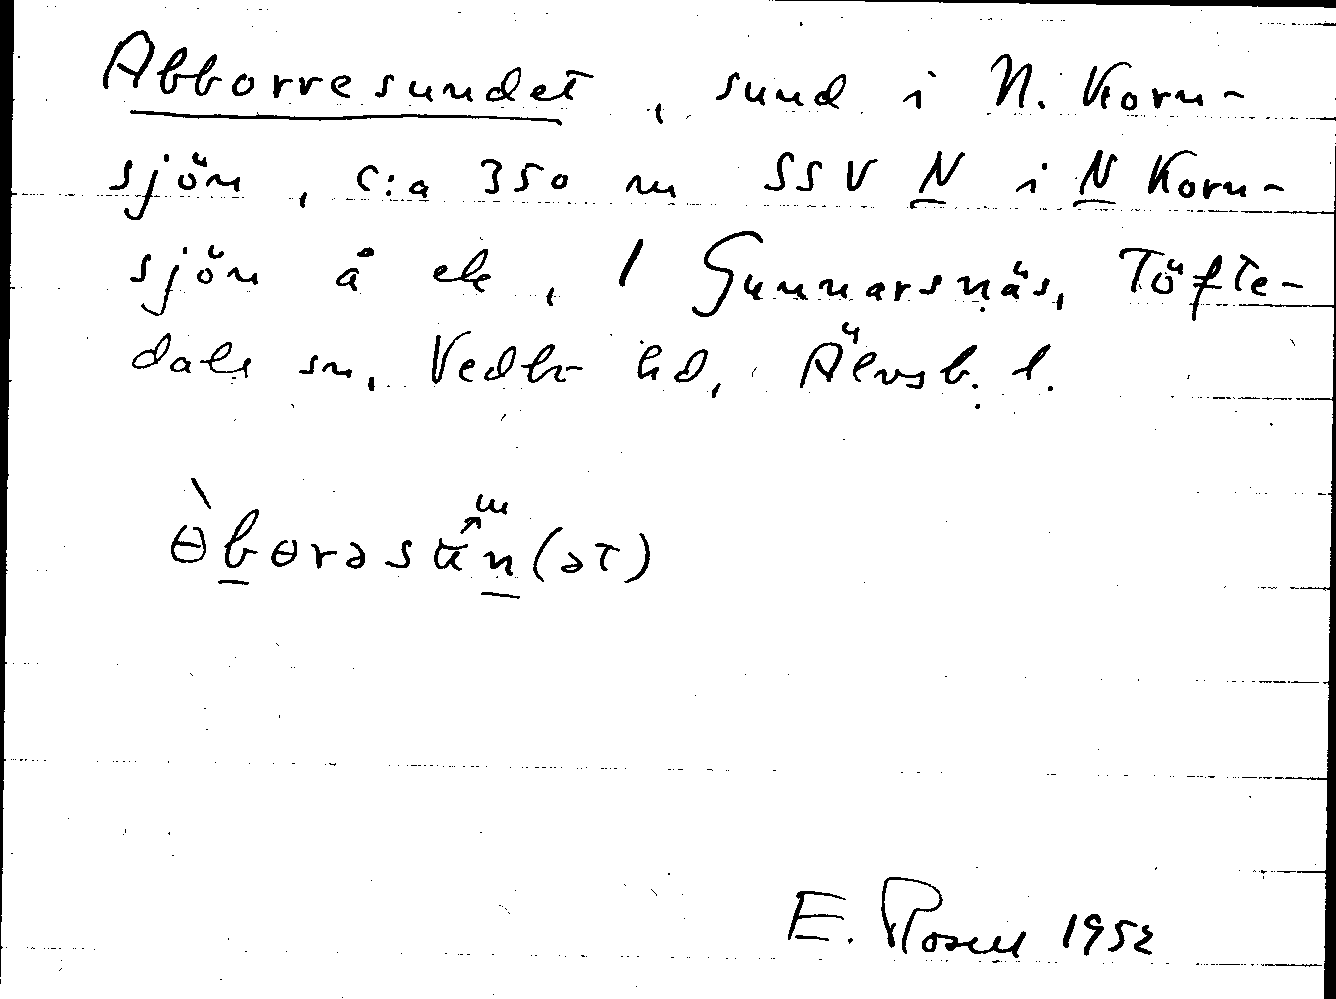 Abborresundet, sund i N. Korn-
sjön, c:a 350 m SSV N i N Korn-
sjön å ek, 1 Gunnarsnäs, Töfte-
dals sn, Vedbo hd, Älvsb. l.
ɵ̀bɵrəsun(ət)
E. Rosell 1952